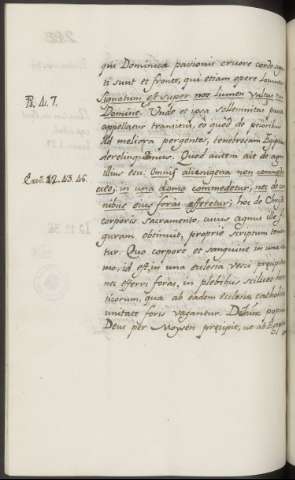 qui Dominicæ passionis cruore corde sanc-
ti sunt et fronte, qui etiam opere
Signatum est super nos Lumen vultus tui
Ps. 4. 7.
Domine. Unde et ipsa sollemnitas
appellatur transitus, eo quod de prioribus
ad meliora pergentes, tenebrosam Egyptum
derelinquimus. Quod autem ait de agni
illius esu. Omnis alienigena non comedet
Exod. 12. 43. 46.
ex eo; in una domo commedetur; nec de car-
nibus eius foras efferetur; hoc de Christi
corporis Sacramento, cuius agnus ille fi-
guram obtinuit, proprie scriptum
tur. Quo corpore et sanguine in una
mo, id est, in una ecclesia vesci præcipitur
nec efferri foras, in plebibus scilicet
ticorum, quæ ab eadem ecclesiæ catholicæ
unitate foris vagantur. Deinde
Deus per Moysen præcipit,